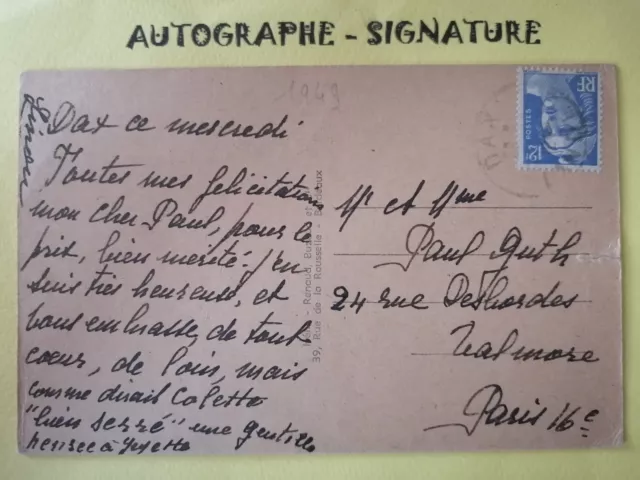 AUTOGRAPHE - SIGNATURE
1949
Simone
Dax ce mercredi
Toutes mes felicitations
mon cher Paul, pour le
prix, bien mérité. J'en
suis très heureuse, et
vous embrasse, de tout
coeur, de loin, mais
comme dirait Colette
"bien serré" une gentille
pensée à Juliette
Mr et Mme
Paul Guth
24 rue Desbordes
Valmore
Paris 16e
RF
POSTES
12F
39, Rue de la Rousselle - Bordeaux